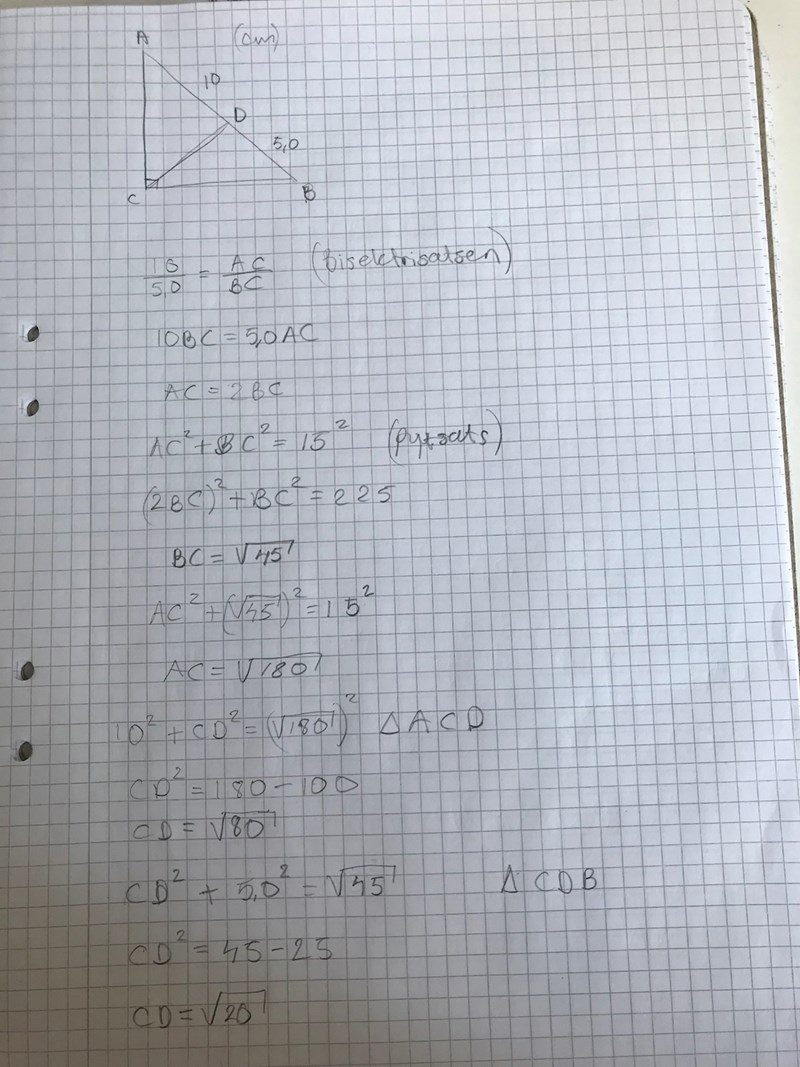 A (cm)
10
D
5,0
C B
10/5,0 = AC/BC (Bisektrisatsen)
10BC = 5,0AC
AC = 2BC
AC² + BC² = 15² (pyt.sats)
(2BC)² + BC² = 225
BC = √45
AC² + (√45)² = 15²
AC = √180
10² + CD² = (√180)² Δ ACD
CD² = 180 - 100
CD = √80
CD² + 5,0² = √45 Δ CDB
CD² = 45 - 25
CD = √20